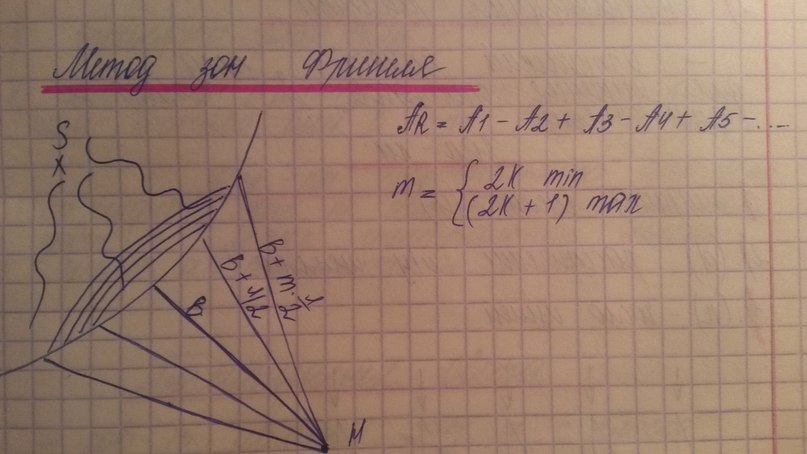 Метод зон Френеля
AR = A1 - A2 + A3 - A4 + A5 - ...
m = { 2K min
(2K + 1) max
S
x
B
B + λ/2
B + m · λ/2
M